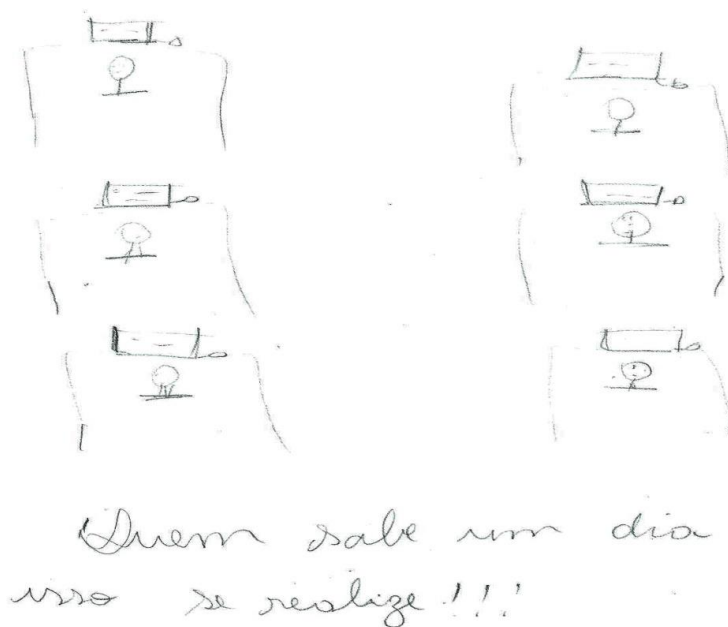 Quem sabe um dia
isso se realize!!!